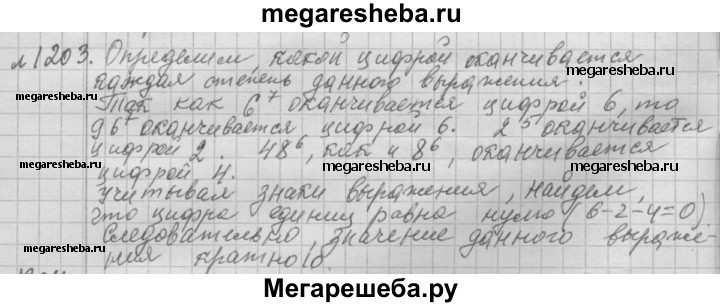 megaresheba.ru
№1203. Определим, какой цифрой оканчивается
каждая степень данного выражения.
megaresheba.ru megaresheba.ru megaresheba.ru
Так как 6⁷ оканчивается цифрой 6, то
96⁷ оканчивается цифрой 6. 2⁵ оканчивается
цифрой 2. 48⁶, как и 8⁶, оканчивается
megaresheba.ru megaresheba.ru megaresheba.ru
цифрой 4.
Учитывая знаки выражения, найдем,
что цифра единиц равна нулю (6-2-4=0)
megaresheba.ru megaresheba.ru megaresheba.ru
Следовательно, значение данного выраже-
ния кратно 10.
Мегарешеба.ру